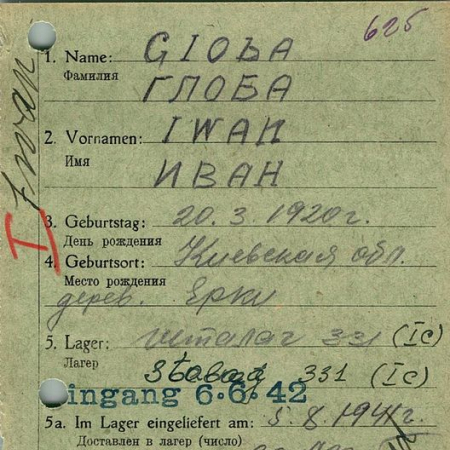 626
1. Name: GIOЬA
Фамилия
ГЛОБА
2. Vornamen: IWAN
Имя
ИВАН
Iwan
I
3. Geburtstag: 20.3.1920г.
День рождения
4. Geburtsort: Киевская обл.
Место рождения
дерев. Ерки
5. Lager: шталаг 331 (Ic)
Лагер
Stalag 331 (Ic)
ingang 6.6.42
5a. Im Lager eingeliefert am: 5.8.1941г.
Доставлен в лагер (число)